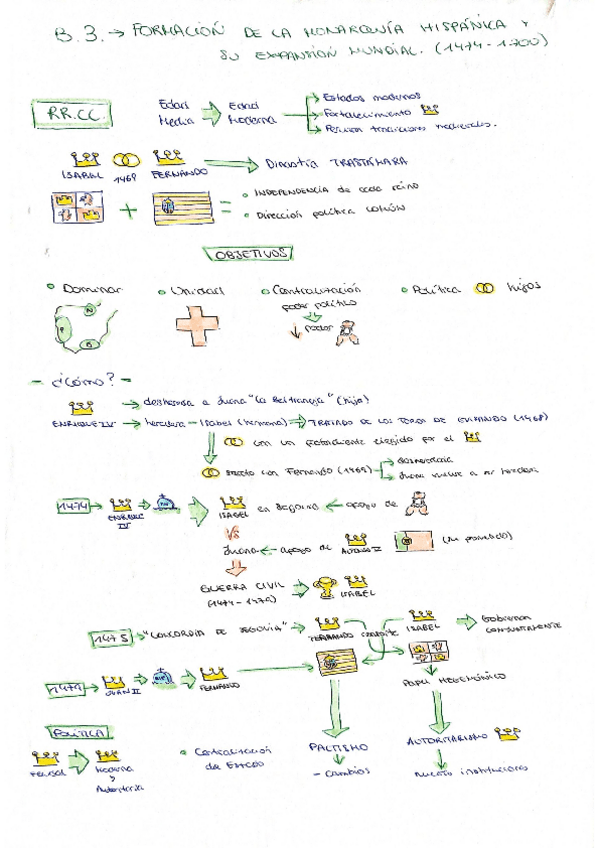 B.3. → FORMACIÓN DE LA MONARQUÍA HISPÁNICA Y
SU EXPANSIÓN MUNDIAL. (1474-1700)
RR.CC.
Edad Media
Edad Moderna
Estados modernos
Fortalecimiento
Perviven tradiciones medievales.
ISABEL 1469 FERNANDO
Dinastía TRASTÁMARA
+ =
• INDEPENDENCIA de cada reino
• Dirección política común
OBJETIVOS
• Dominar
• Unidad
• Centralización
poder político
↓ poder
• Política hijos
N
P
- ¿Cómo? -
ENRIQUE IV
→ deshereda a Juana "La Beltraneja" (hija)
→ heredera - Isabel (hermana) → TRATADO DE LOS TOROS DE GUISANDO (1468)
con un pretendiente elegido por el
secreto con Fernando (1469)
desheredada
Juana vuelve a ser heredera
1474
ENRIQUE IV
ISABEL en Segovia ← apoyo de
VS
Juana ← apoyo de ALFONSO V (su prometido)
GUERRA CIVIL
(1474-1479)
ISABEL
1475 → "CONCORDIA DE SEGOVIA" →
FERNANDO consorte
ISABEL
Gobiernan
CONJUNTAMENTE
1479
JUAN II
FERNANDO
PAPEL HEGEMÓNICO
POLÍTICA
FEUDAL
Moderna
y
Autoritaria
• Centralización
del Estado
PACTISMO
- cambios
AUTORITARISMO
nuevas instituciones